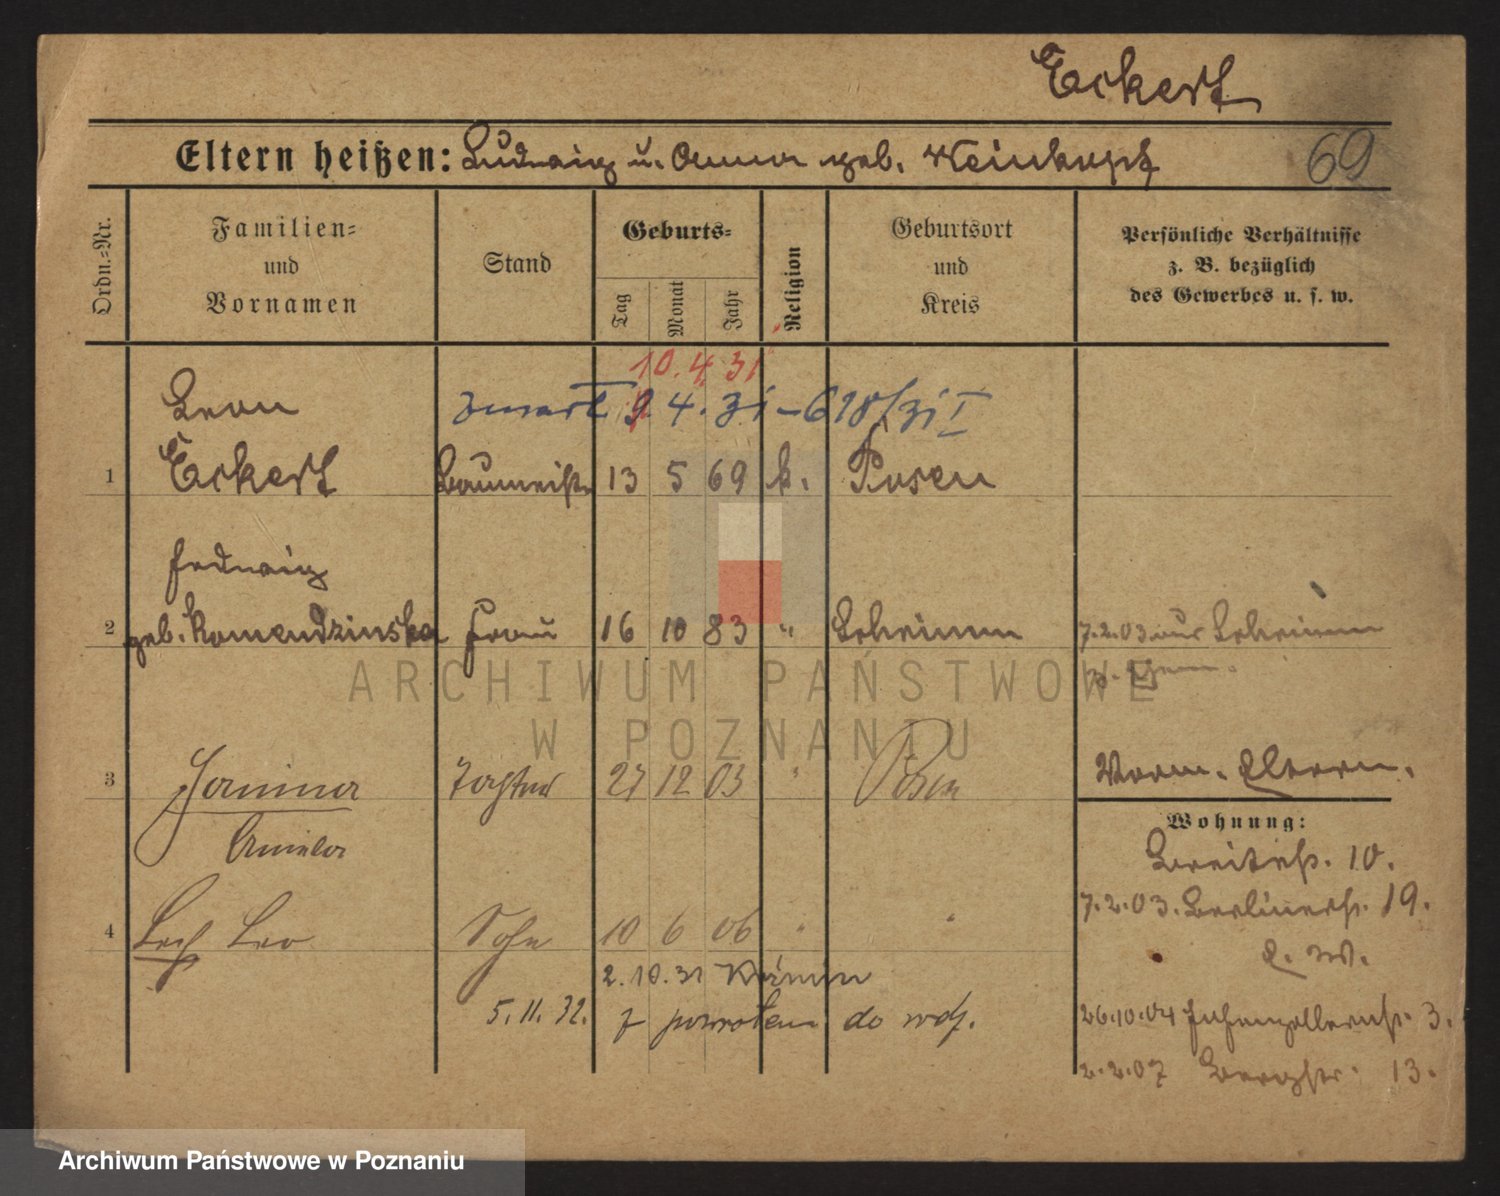 Eckert
Eltern heißen: Ludwig u. Anna geb. Weinkopf
69
Ordn.-Nr.
Familien-
und
Vornamen
Stand
Geburts-
Tag
Monat
Jahr
Religion
Geburtsort
und
Kreis
Persönliche Verhältnisse
z. B. bezüglich
des Gewerbes u. s. w.
10. 4. 31
Leon
zmarł 9 4. 31 - 618/31 I
1 Eckert Baumeistr 13 5 69 k. Posen
Hedwig
2 geb. Komendzinska Frau 16 10 83 " 7.2.03 aus
3 Janina Tochter 27 12 03 " Posen Vorm. Eltern.
Aniela
Wohnung:
Breitestr. 10.
7.2.03. Berlinerstr. 19.
4 Lech Leo Sohn 10 6 06 " "
2.10.31
5.11.32. z powrotem do
26.10.04 Hohenzollernstr. 3.
2.2.07 Bergstr. 13.
ARCHIWUM PAŃSTWOWE
W POZNANIU
Archiwum Państwowe w Poznaniu